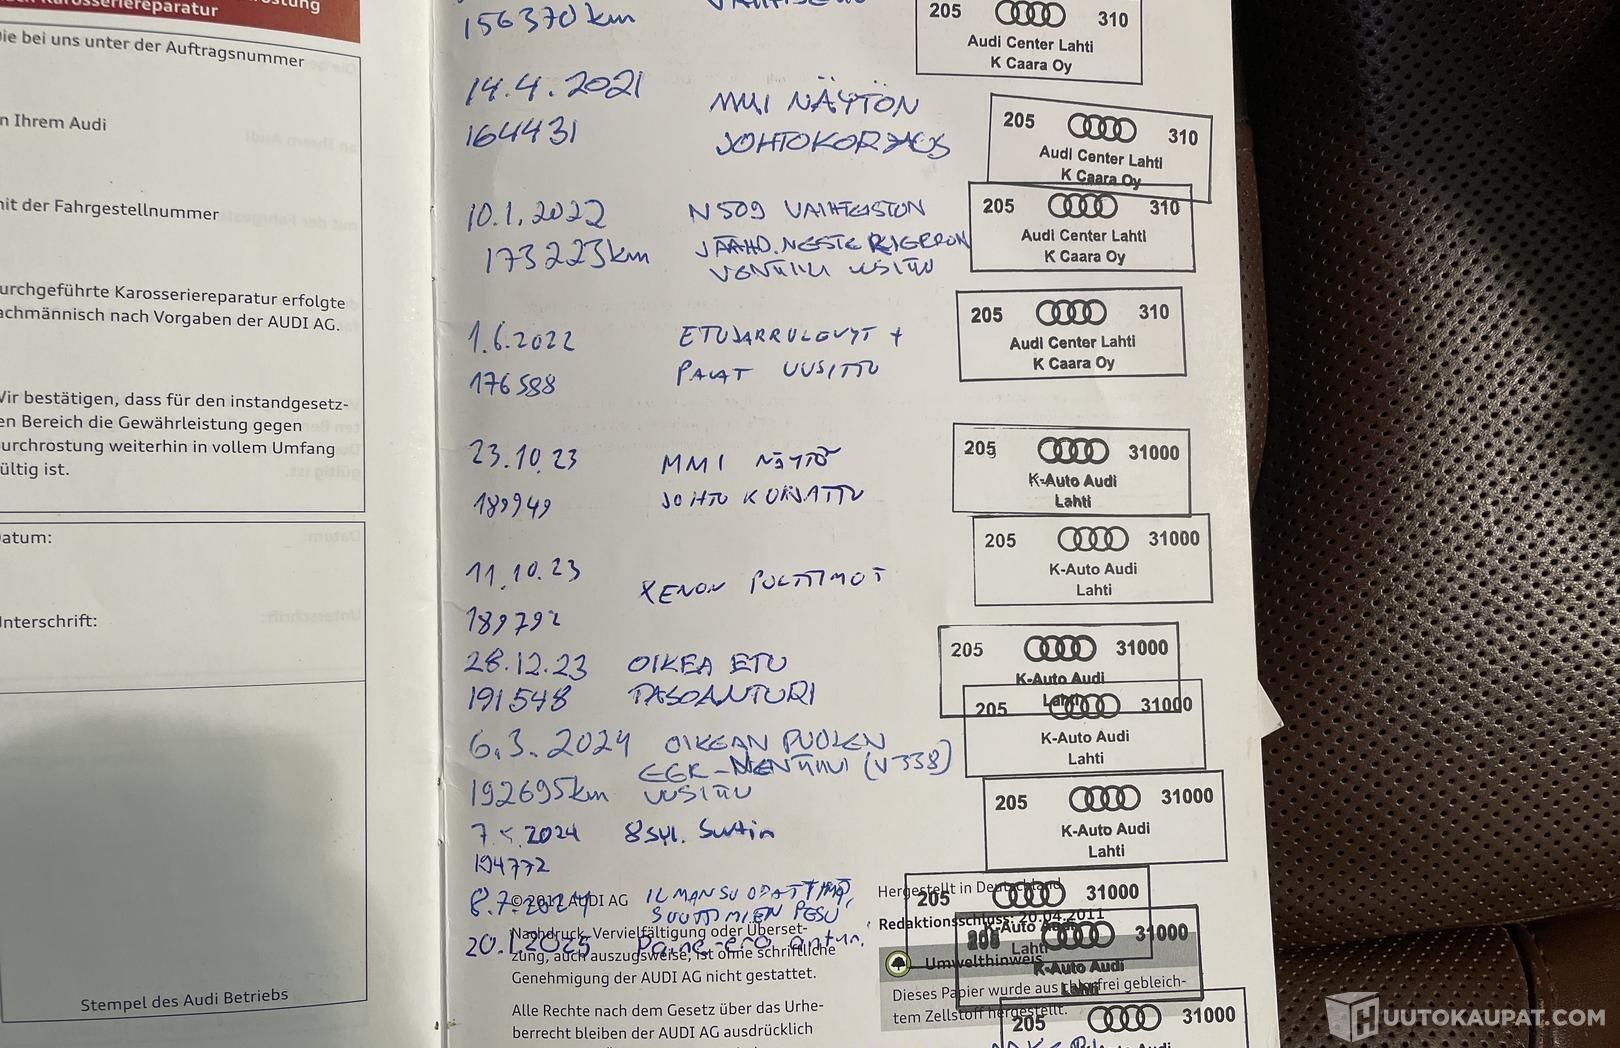 Karosseriereparatur
Die bei uns unter der Auftragsnummer
an Ihrem Audi
mit der Fahrgestellnummer
durchgeführte Karosseriereparatur erfolgte
fachmännisch nach Vorgaben der AUDI AG.
Wir bestätigen, dass für den instandgesetz-
ten Bereich die Gewährleistung gegen
Durchrostung weiterhin in vollem Umfang
gültig ist.
Datum:
Unterschrift:
Stempel des Audi Betriebs
156370km
205 310
Audi Center Lahti
K Caara Oy
14.4.2021 MMI NÄYTÖN
164431 JOHTOKORJAUS
205 310
Audi Center Lahti
K Caara Oy
10.1.2022 N509 VAIHTEISTON
173223km JÄÄHD.NESTE KIERRON
VENTTIILI UUSITTU
205 310
Audi Center Lahti
K Caara Oy
1.6.2022 ETUJARRULEVYT +
176588 PALAT UUSITTU
205 310
Audi Center Lahti
K Caara Oy
23.10.23 MMI NÄYTÖ
189949 JOHTO KORJATTU
205 31000
K-Auto Audi
Lahti
11.10.23 XENON POLTTIMOT
189792
205 31000
K-Auto Audi
Lahti
28.12.23 OIKEA ETU
191548 TASOANTURI
205 31000
K-Auto Audi
Lahti
6.3.2024 OIKEAN PUOLEN
EGR-VENTTIILI (V338)
192695km UUSITTU
205 31000
K-Auto Audi
Lahti
7.5.2024 8syl. Suutin
194772
205 31000
K-Auto Audi
Lahti
8.7.2024 ILMANSUODATTIMÄ,
SUUTTIMIEN PESU
20.1.2025 Paine-ero antur.
205 31000
K-Auto Audi
Lahti
205 31000
K-Auto Audi
Lahti
205 31000
© 2011 AUDI AG
Nachdruck, Vervielfältigung oder Überset-
zung, auch auszugsweise, ist ohne schriftliche
Genehmigung der AUDI AG nicht gestattet.
Alle Rechte nach dem Gesetz über das Urhe-
berrecht bleiben der AUDI AG ausdrücklich
Hergestellt in Deutschland
Redaktionsschluss: 20.04.2011
Umwelthinweis
Dieses Papier wurde aus chlorfrei gebleich-
tem Zellstoff hergestellt.
HUUTOKAUPAT.COM